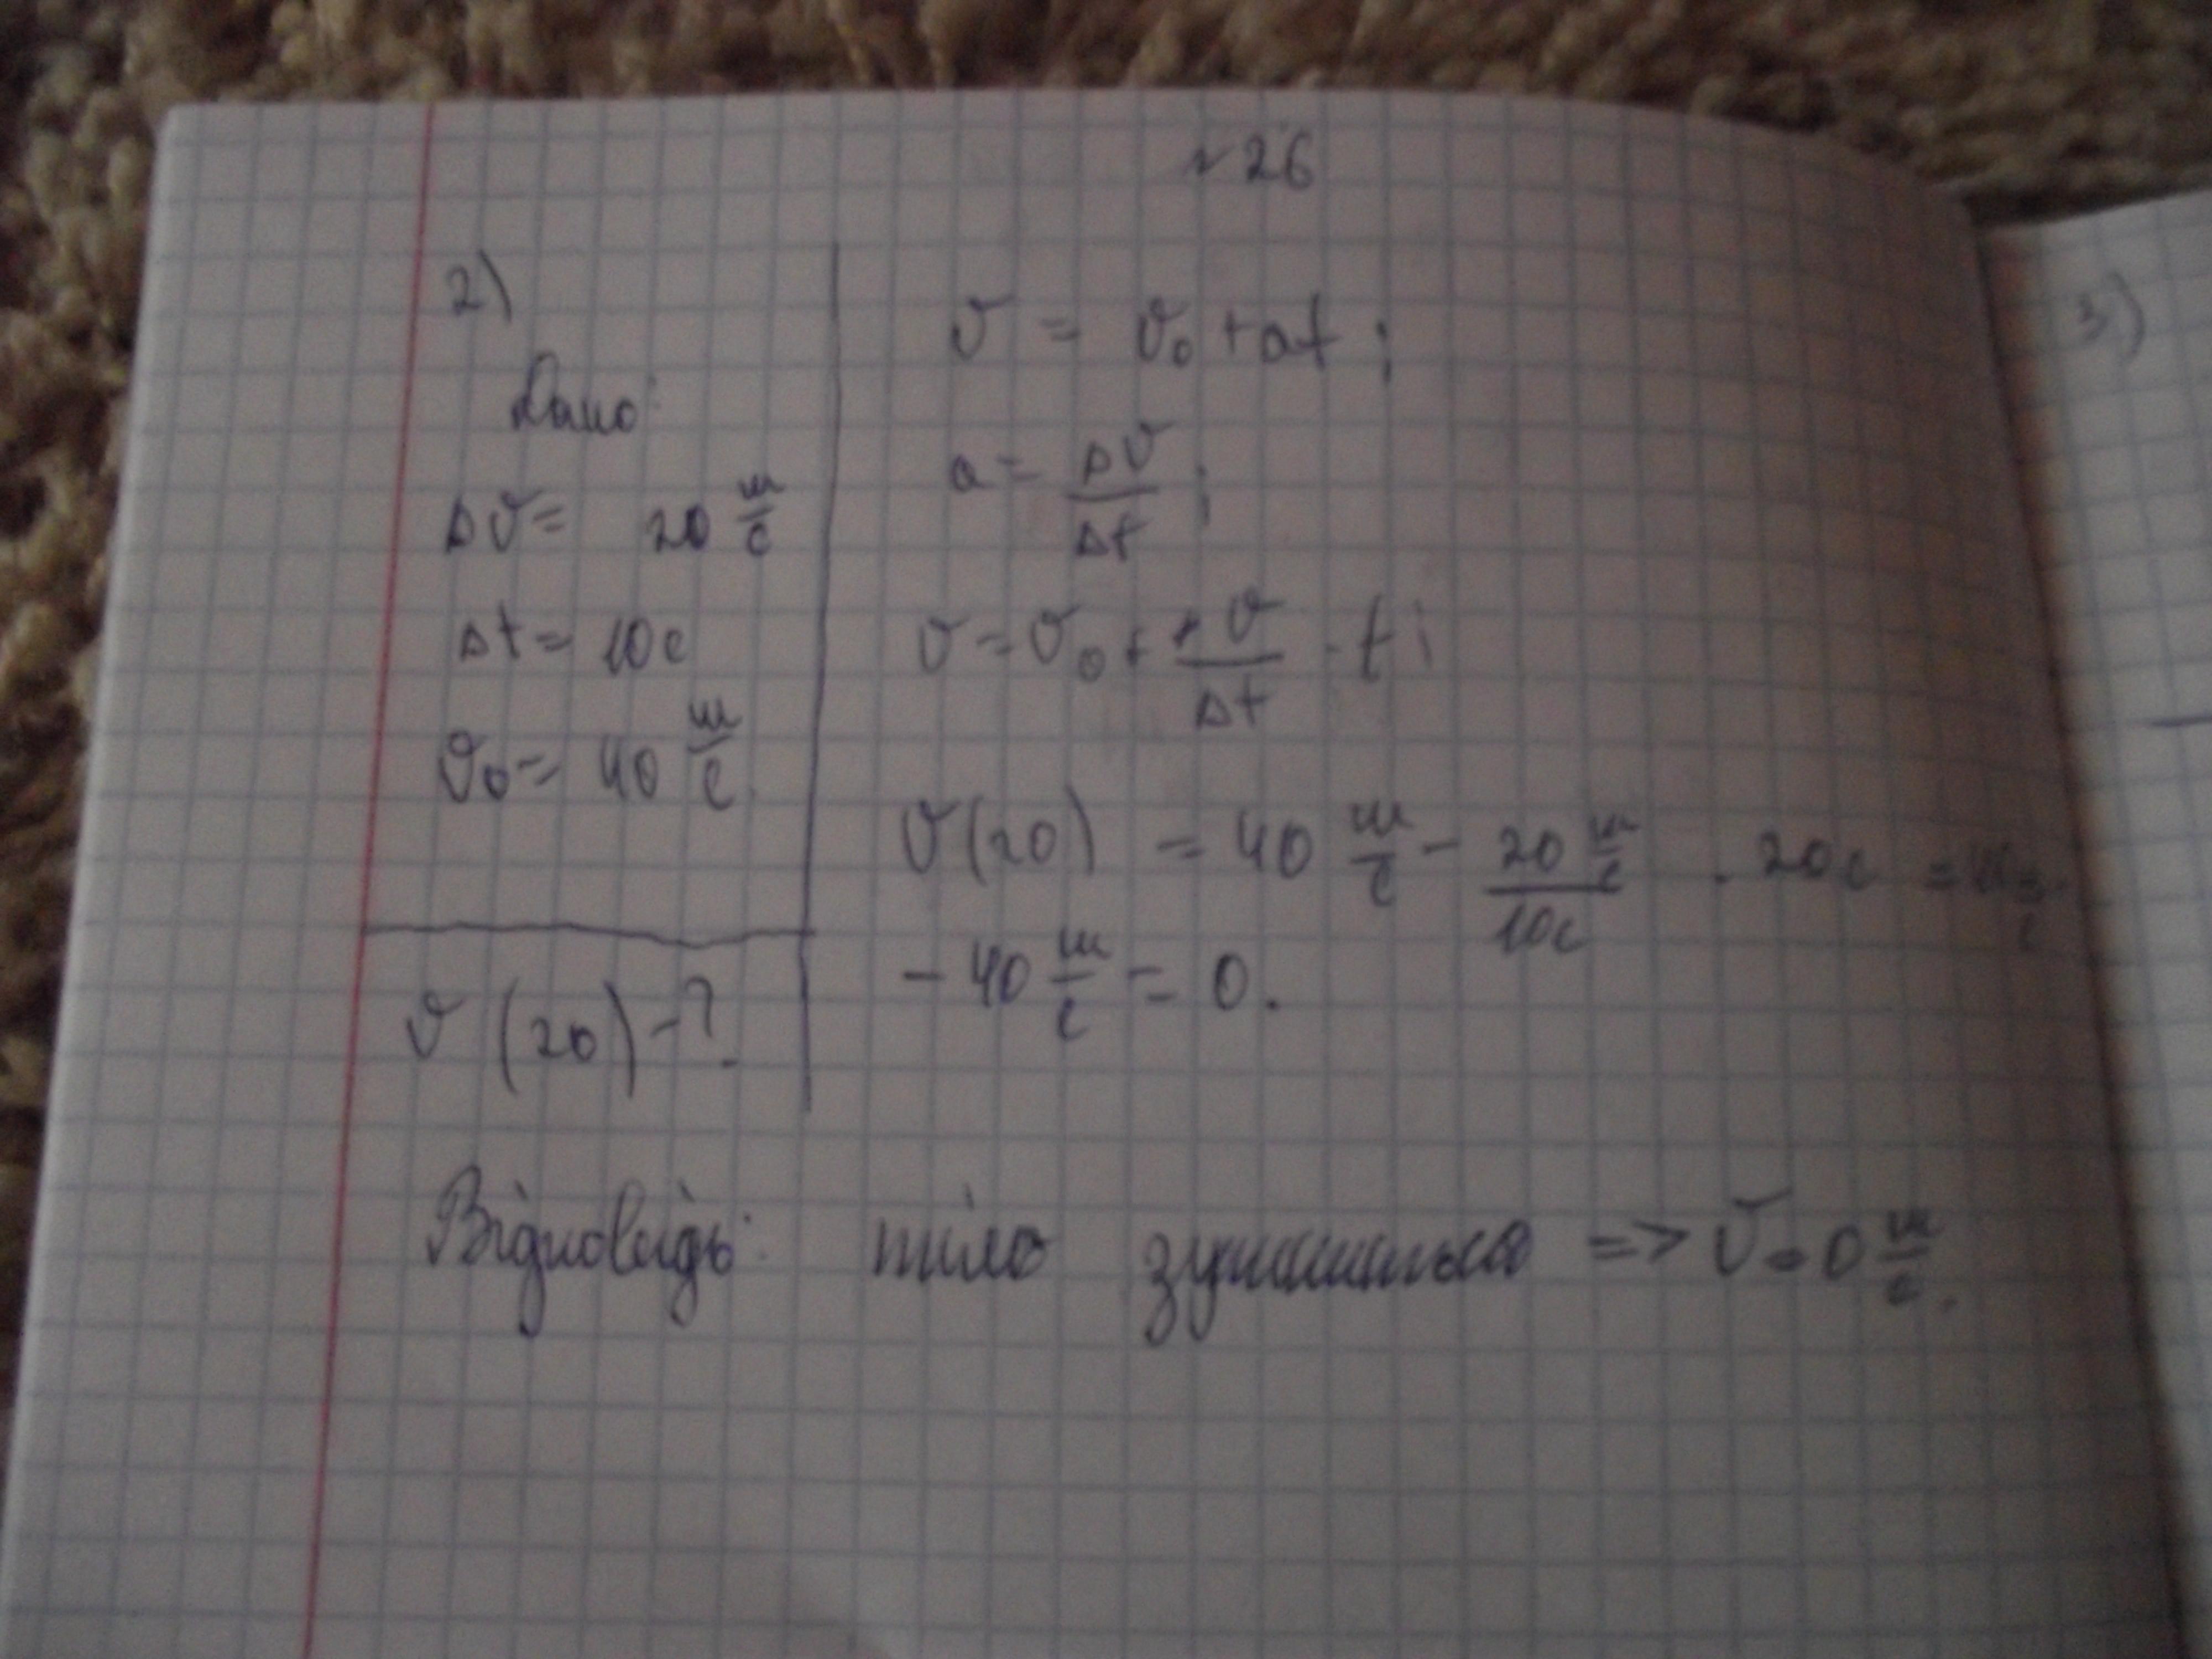 №26
2)
Дано:
Δv = 20 м/с
Δt = 10с
v₀ = 40 м/с
v (20) - ?
v = v₀ + at;
a = Δv/Δt;
v = v₀ + Δv/Δt · t;
v(20) = 40 м/с - 20 м/с / 10с · 20с = 40 м/с -
- 40 м/с = 0.
Відповідь: тіло зупиниться => v = 0 м/с.
3)